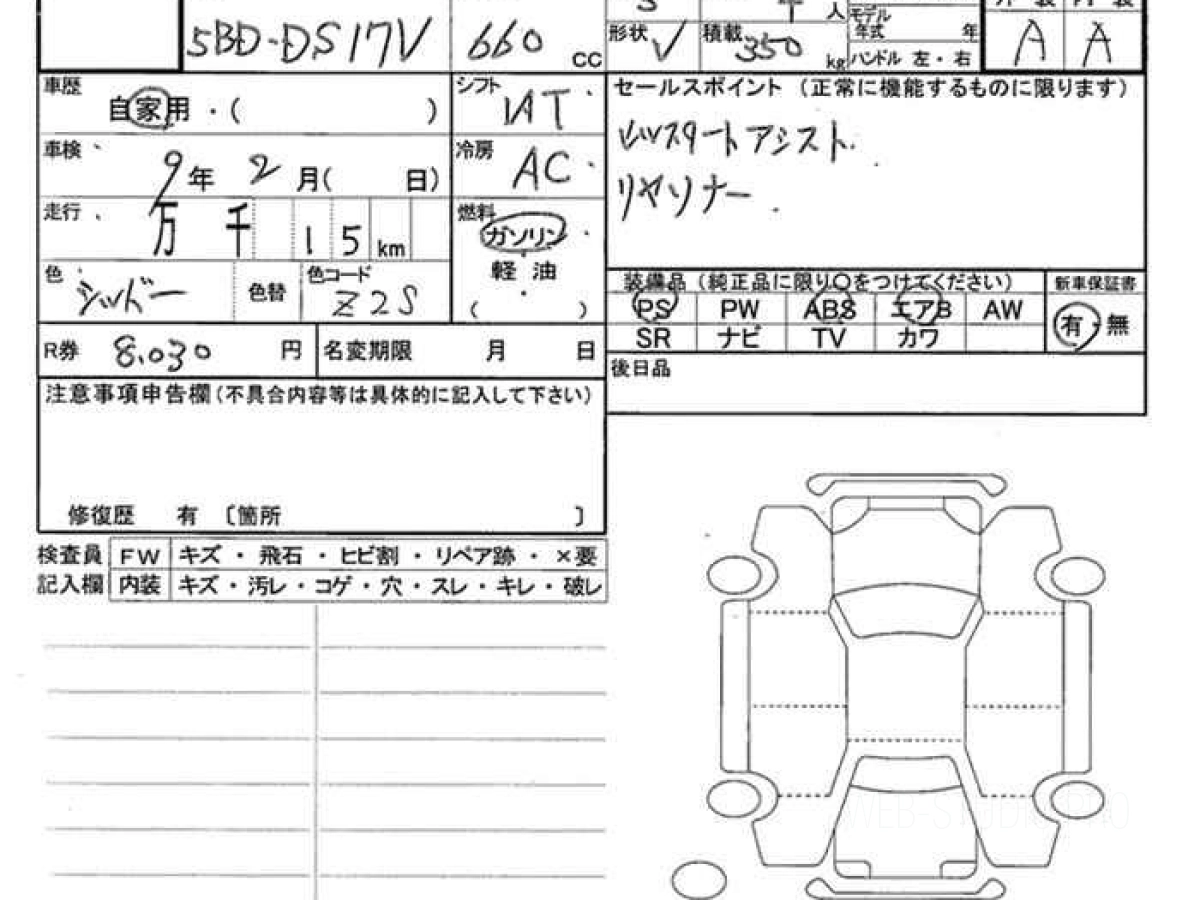 5BD-DS17V 660 cc
人 モデル
年式 年
形状 V 積載 350 kg ハンドル 左・右
A A
車歴 自家用・( )
シフト IAT
セールスポイント (正常に機能するものに限ります)
車検 9年 2月( 日)
冷房 AC
スタートアシスト
リヤソナー
走行 万 千 15 km
燃料 ガソリン
軽・油
( )
色
色替
色コード Z2S
装備品(純正品に限り○をつけてください)
新車保証書
PS PW ABS エアB AW
有・無
SR ナビ TV カワ
R券 8,030 円 名変期限 月 日
後日品
注意事項申告欄(不具合内容等は具体的に記入して下さい)
修復歴 有 〔箇所 〕
検査員 FW キズ・飛石・ヒビ割・リペア跡・×要
記入欄 内装 キズ・汚レ・コゲ・穴・スレ・キレ・破レ